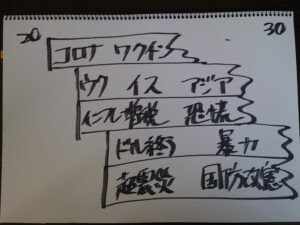 20 30
コロナ ワクチン
ウク イス アジア
インフレ増税 恐慌
ドル終り 暴力
超震災 国防改憲